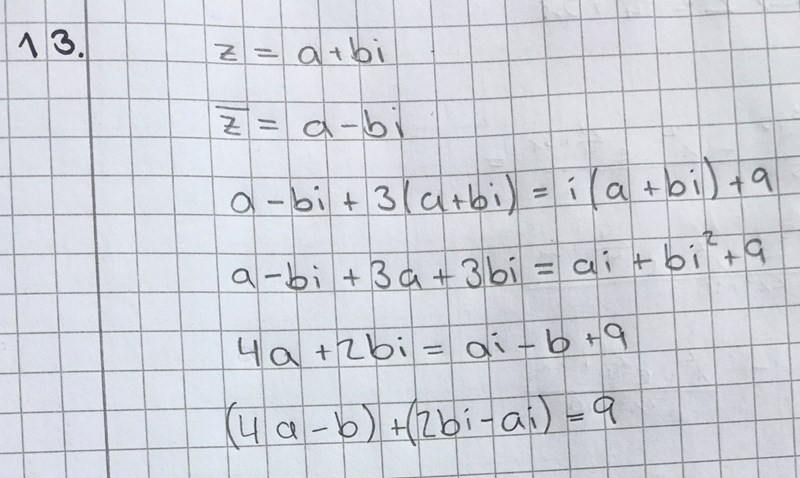 13. z = a+bi
z̅ = a-bi
a-bi + 3(a+bi) = i(a+bi)+9
a-bi + 3a+3bi = ai + bi²+9
4a +2bi = ai-b+9
(4a-b)+(2bi-ai)=9